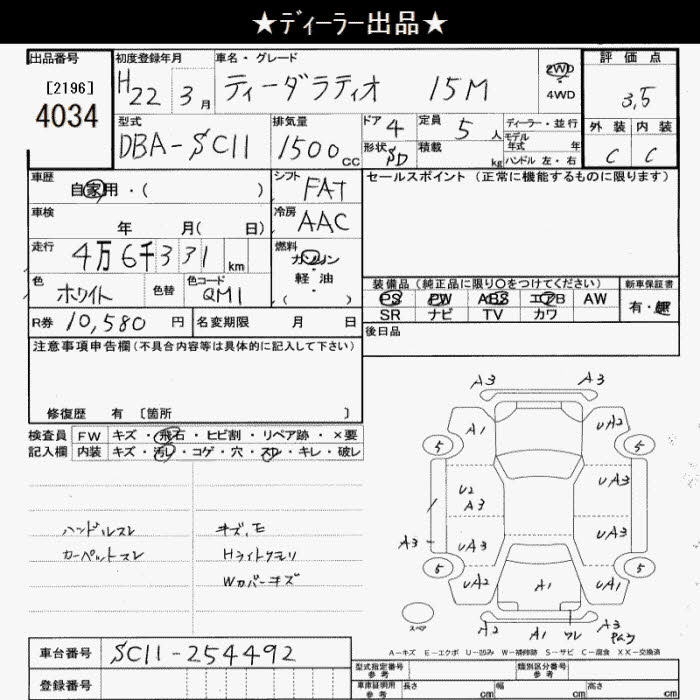 ★ディーラー出品★
出品番号
[2196]
4034
初度登録年月
H22 3月
車名・グレード
ティーダラティオ 15M
2WD
4WD
評価点
3,5
型式
DBA-SC11
排気量
1500cc
ドア 4
定員 5人
形状 SD
積載 kg
ディーラー・並行
モデル
年式 年
ハンドル 左・右
外装 内装
C C
車歴
自家用・( )
シフト
FAT
セールスポイント(正常に機能するものに限ります)
車検
年 月( 日)
冷房
AAC
走行
4万6千331km
燃料
ガソリン
軽油
( )
色
ホワイト
色替
色コード
QM1
装備品(純正品に限り○をつけてください)
PS PW ABS エアB AW
SR ナビ TV カワ
新車保証書
有・無
R券 10,580円
名変期限 月 日
後日品
注意事項申告欄(不具合内容等は具体的に記入して下さい)
修復歴 有 〔箇所 〕
検査員
記入欄
FW キズ・飛石・ヒビ割・リペア跡・×要
内装 キズ・汚レ・コゲ・穴・スレ・キレ・破レ
ハンドルスレ
カーペットスレ
キズ、E
Hライトクモリ
Wカバーキズ
A3 A3
A1 UA2
5 5
U2
A3
UA3
A3
UA3 UA3
5 5
UA2 A1 UA1
スペア
A2 A1 ワレ A3
A-キズ E-エクボ U-凹み W-補修跡 S-サビ C-腐食 XX-交換済
車台番号 SC11-254492
登録番号
型式指定番号
参考
類別区分番号
参考
車庫証明用
参考
長さ cm
幅 cm
高さ cm